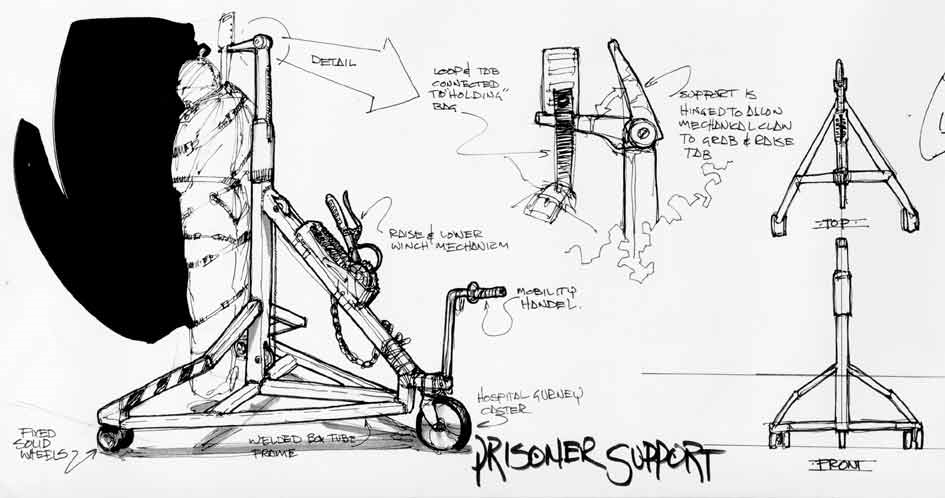 DETAIL
LOOP & TAB
CONNECTED
TO "HOLDING"
BAG
SUPPORT IS
HINGED TO ALLOW
MECHANICAL CLAW
TO GRAB & RAISE
TAB
RAISE & LOWER
WINCH MECHANIZM
MOBILITY
HANDEL.
HOSPITAL GURNEY
CASTER
FIXED
SOLID
WHEELS
WELDED BOX TUBE
FRAME
PRISONER SUPPORT
TOP
FRONT